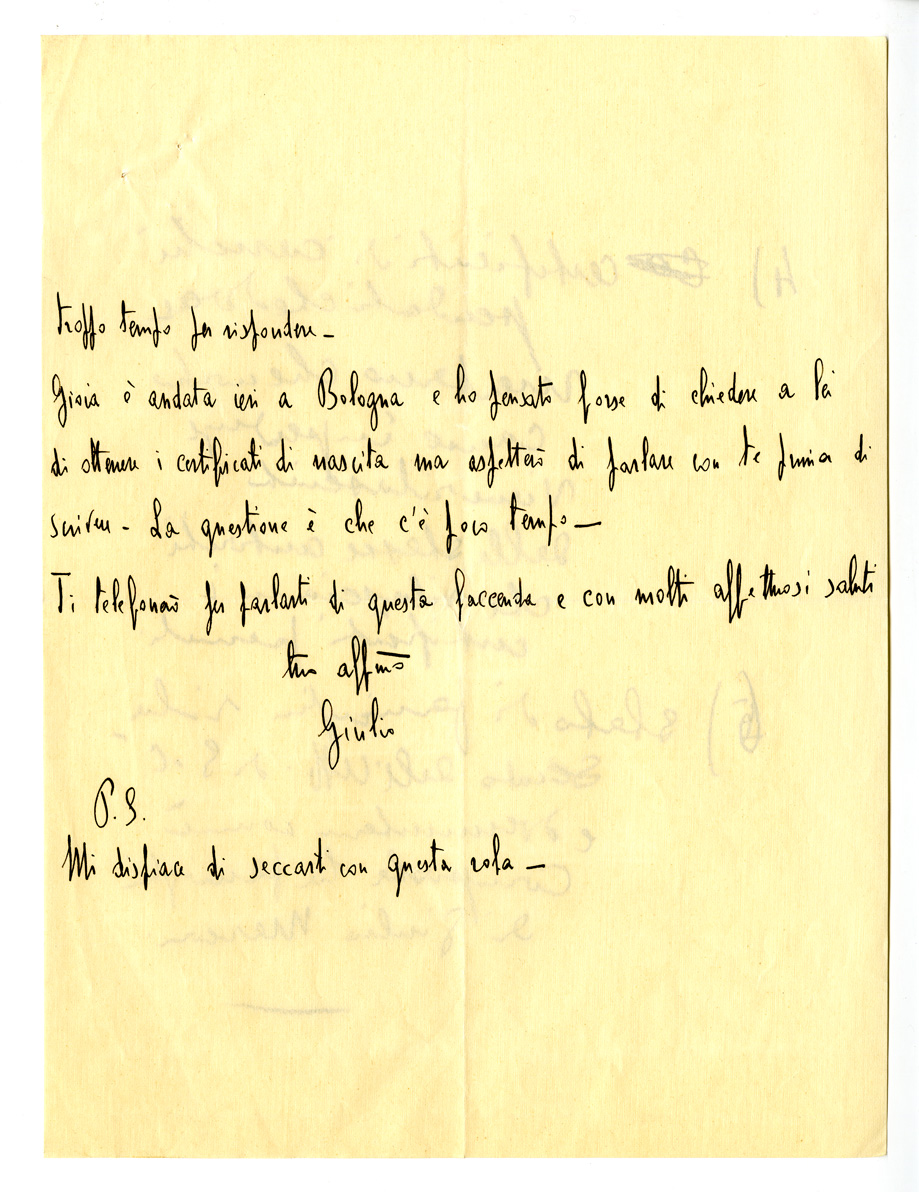 troppo tempo per rispondere –
Gioia è andata ieri a Bologna e ho pensato forse di chiedere a lei
di ottenere i certificati di nascita ma aspetterò di parlare con te prima di
scrivere – La questione è che c'è poco tempo –
Ti telefonerò per parlarti di questa faccenda e con molti affettuosi saluti
tuo affmo
Giulio
P.S.
Mi dispiace di seccarti con questa roba –